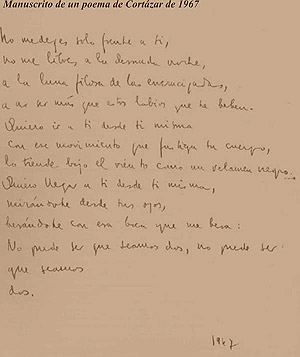 Manuscrito de un poema de Cortázar de 1967
No me dejes solo frente a ti,
no me libres a la desnuda noche,
a la luna filosa de las encrucijadas,
a no ser más que estos labios que te beben.
Quiero ir a ti desde ti misma
con ese movimiento que fustiga tu cuerpo,
lo tiende bajo el viento como un velamen negro.
Quiero llegar a ti desde ti misma,
mirándote desde tus ojos,
besándote con esa boca que me besa:
No puede ser que seamos dos, no puede ser
que seamos
dos.
1967